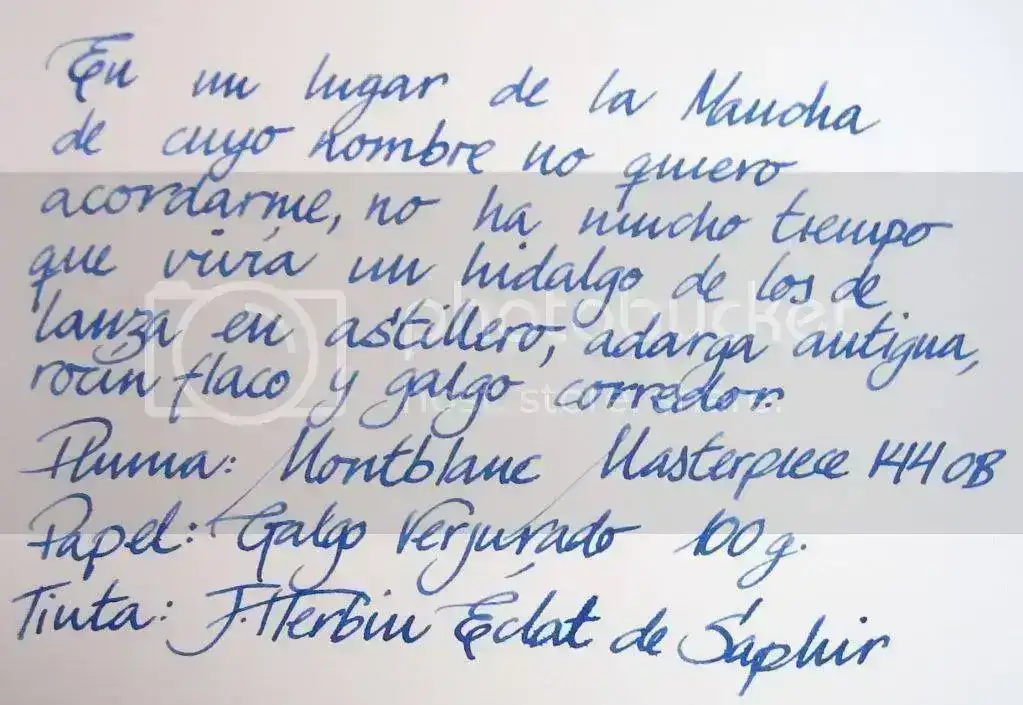 En un lugar de la Mancha
de cuyo nombre no quiero
acordarme, no ha mucho tiempo
que vivía un hidalgo de los de
lanza en astillero, adarga antigua,
rocín flaco y galgo corredor.
Pluma: Montblanc Masterpiece 144 OB
Papel: Galgo Verjurado 100 g.
Tinta: J. Herbin Éclat de Saphir
photobucket